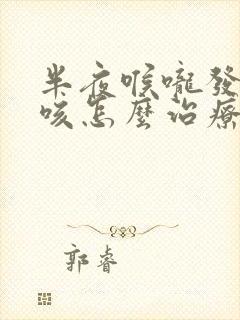 半夜喉嚨發
咳怎麼治療
郭睿